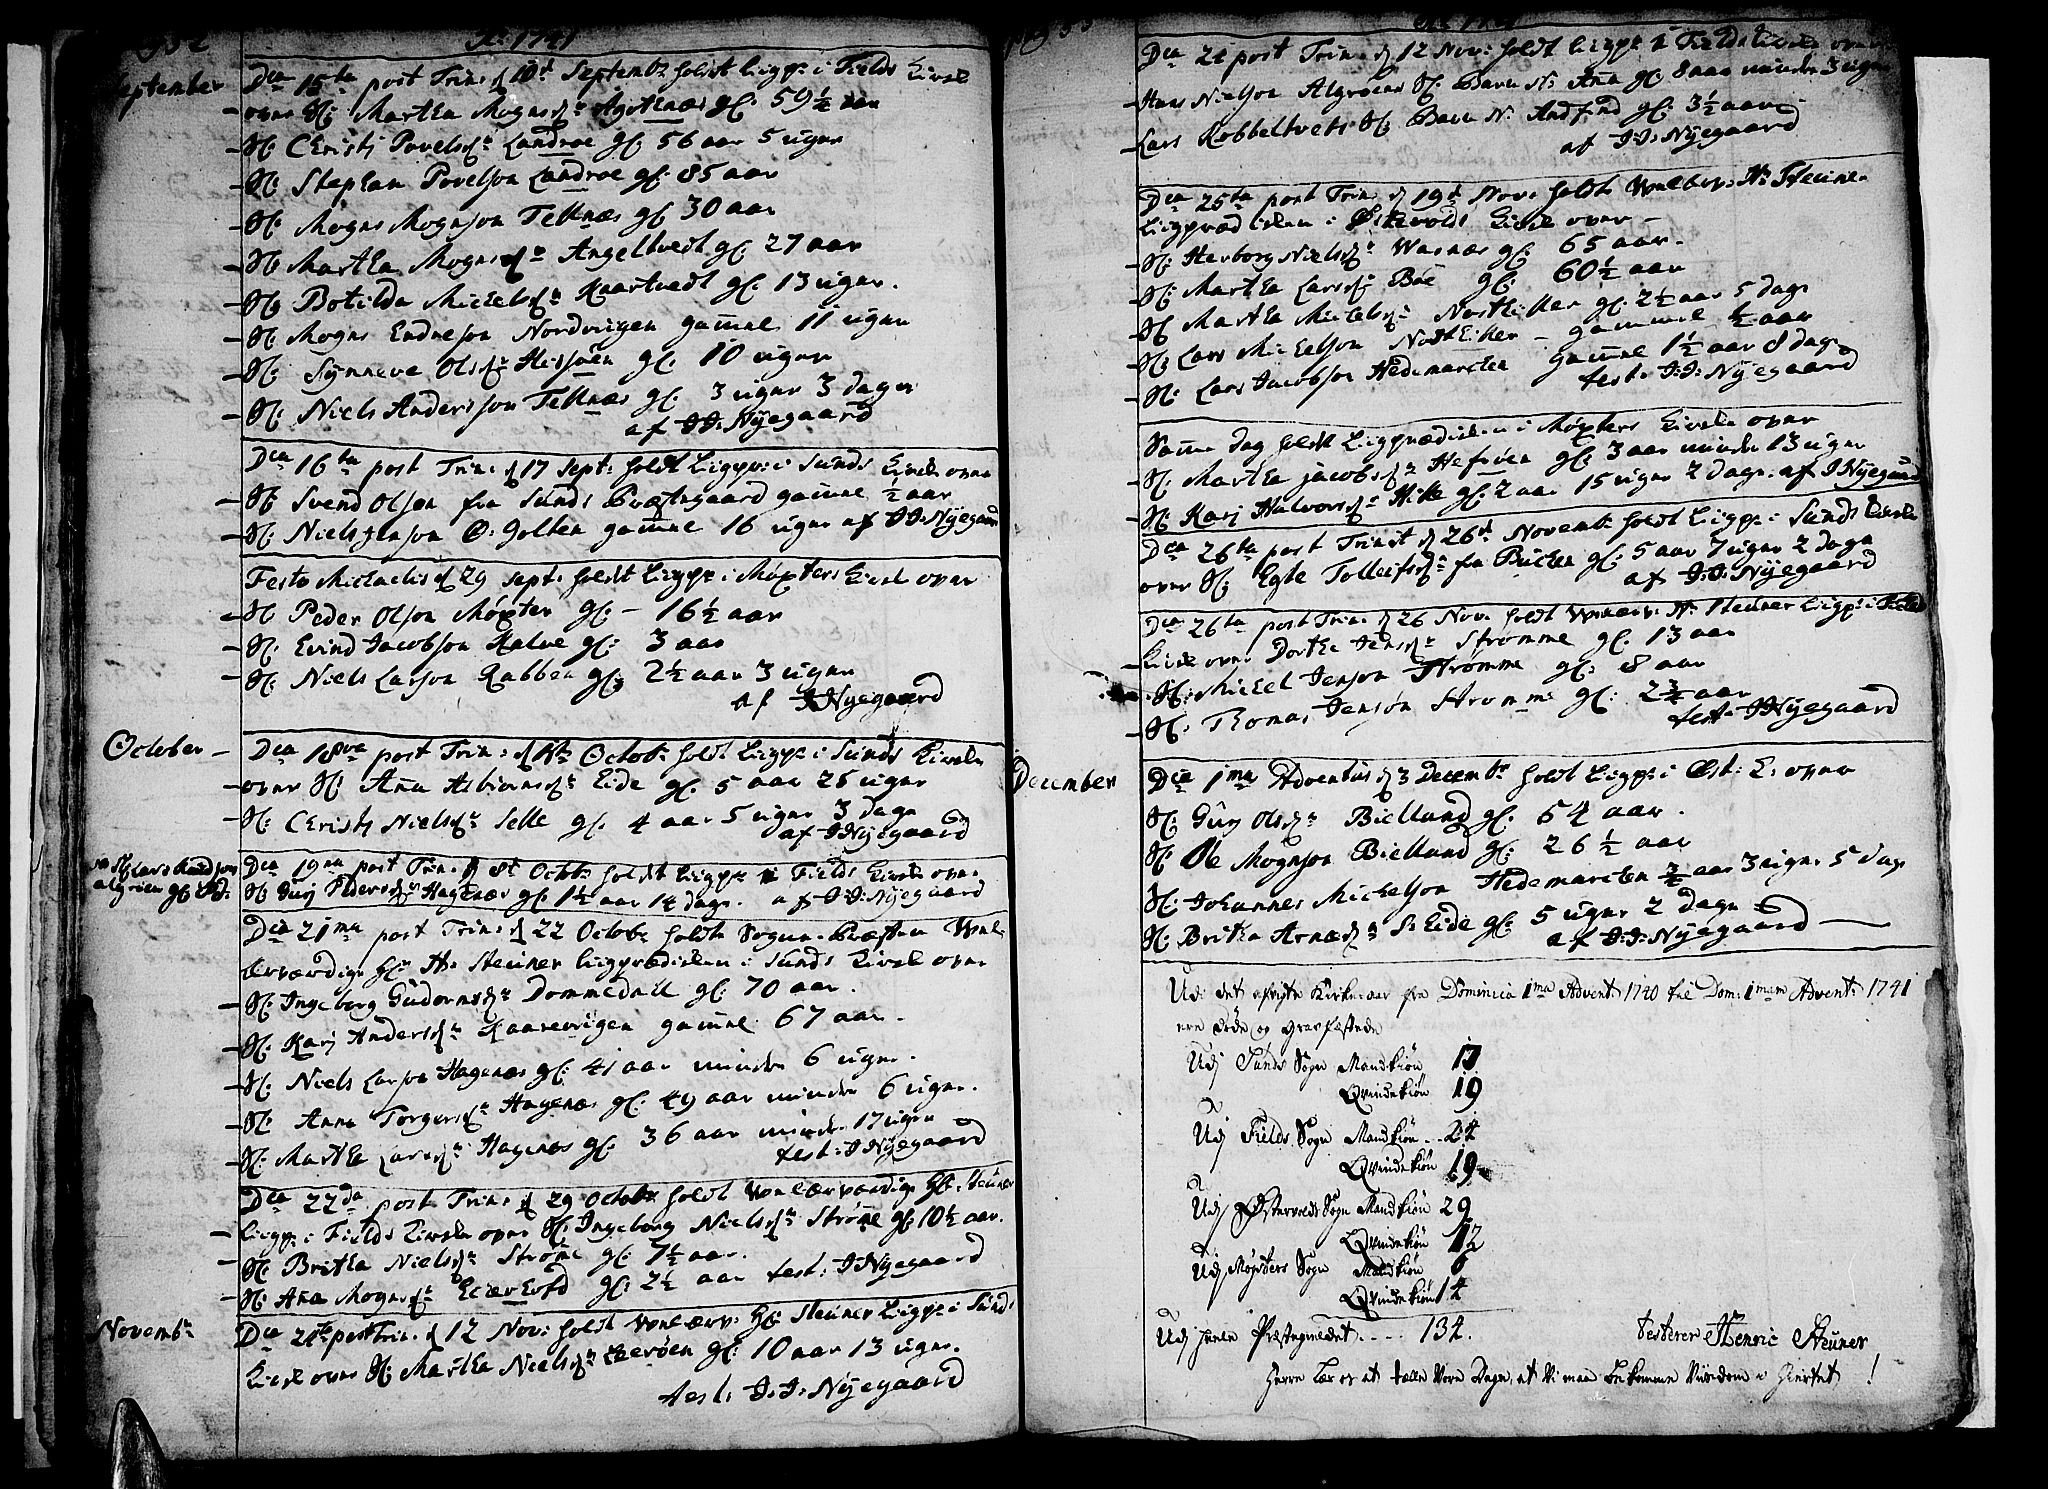 Ao 1741
September
Dca 15ta post Trin: d 10d Septembr holdt Liigpr: i Fields Kirke
over Sl: Martha Mognsdr Agotenæs gl: 59½ aar
Sl: Christj Povelsdr Landroe gl: 56 aar 5 uger
Sl: Stephan Povelson Landroe gl: 85 aar
Sl: Mogns Mognson Tellnæs gl: 30 aar
Sl: Martha Mognsdr Angeltvedt gl: 27 aar
Sl: Botilda Mickelsdr Kaartvedt gl: 13 uger.
Sl: Mogns Endreson Nordvigen gamel 11 uger
Sl: Synneve Olsdr gl: 10 uger
Sl: Niels Andersson Tellnæs gl: 3 uger 3 dager
af J.J. Nyegaard
Dca 16ta post Trin: d 17 Sept: holdt Liigpr: i Sunds Kirke over
Sl: Svend Olson fra Sunds Præstegaard gamel ½ aar
Sl: Niels Jenson O: Golten gamel 16 uger af J.J. Nyegaard
Festo Michaelis d 29 Sept: holdt Liigpr: i Møxters Kirke over
Sl: Peder Olson Møxter gl: – 16½ aar
Sl: Evind Jacobson Kalve gl: 3 aar
Sl: Niels Larson Rabben gl: 2½ aar 3 uger
af J Nyegaard
October –
Dca 18va post Trin: d 1ste Octobr holdt Liigpr: i Sunds Kirke
over Sl: Aña Asbiornsdr Eide gl: 5 aar 25 uger
Sl: Christj Nielsdr Selle gl: 4 aar 5 uger 3 dage
af J Nyegaard
Sl: Lars Knudson
Algrøen gl:
Dca 19na post Trin: d 8de Octobr holdt Liigpr: i Fields Kirke over
Sl: Gurj Pedersdr Hagenæs gl: 1½ aar 14 dage. af J.J. Nyegaard
Dca 21ma post Trin: d 22 Octobr holdte Sogne-Præsten Vel-
ærværdige Hr: H: Steüner Liigprædiken i Sunds Kirke over
Sl: Ingeborg Gudornsdr Dommedall gl: 70 aar.
Sl: Karj Andersdr Kaarevigen gamel 67 aar.
Sl: Niels Larson Hagenæs gl: 41 aar mindre 6 uger.
Sl: Anna Torgersdr Hagenæs gl: 49 aar mindre 6 uger.
Sl: Martha Larsdr Hagenæs gl: 36 aar mindre 17 uger
test: J Nyegaard
Dca 22da post Trin: d 29 Octobr holdt Velærværdige Hr: Steüner
Liigpr: i Fields Kirke over Sl: Ingeborg Nielsdr Strøme gl: 10½ aar.
Sl: Britha Nielsdr Strøme gl: 7½ aar.
Sl: Aña Mognsdr Eckerhofd gl: 2½ aar test: J Nyegaard
Novembr
Dca 24ta post Trin: d 12 Nov: holdt Velærv: Hr: Steüner Liigpr: i Sunds
Kirke over Sl: Martha Nielsdr Lerøen gl: 10 aar 13 uger.
test: J.J. Nyegaard
Dca 24 post Trin: d 12 Nov: holdt Liigpr: i Fields Kirke over
Hans Nielson Algrøens Sl: Barn N: Aña gl: 8 aar mindre 3 uger
Lars Kobbeltvets Sl: Barn N: Andfind gl: 3½ aar
af J.J. Nyegaard
Dca 25ta post Trin: d 19d Nov: holdte Velærv: Hr Steüner
Liigprædiken i Østervolds Kirke over –
Sl: Herborg Nielsdr Wasnæs gl: 65 aar.
Sl: Martha Larsdr Bøe gl: 60½ aar
Sl: Martha Mickelsdr gl: 2½ aar 5 dage
Sl: Lars Mickelson – gammel ½ aar
Sl: Lars Jacobson Hedemarcken gamel 1½ aar 8 dage
test: J.J. Nyegaard
Same dag holdt Liigprædiken i Møxters Kirke over
Sl: Martha Jacobsdr gl: 3 aar mindre 13 uger
Sl: Karj Halvorsdr gl: 2 aar 15 uger 2 dage. af J Nyegaard
Dca 26ta post Trinit d 26d Novembr holdt Liigpr: i Sunds Kirke
over Sl: Egle Tollefsdr fra Bücken gl: 5 aar 7 uger 2 dage
af J.J. Nyegaard
Dca 26ta post Trin: d 26 Nov: holdt Velærv: Hr Steüner Liigpr: i Fields
Kirke over Dorthe Jensdr Strømme gl: 13 aar
Sl: Mickel Jenson Strømme gl: 8 aar
Sl: Thomas Jenson Strømme gl: 2¾ aar
test: J Nyegaard
December
Dca 1ma Adventus d 3 Decembr holdt Liigpr: i Øst: K: over
Sl: Gurj Olsdr Biellund gl: 54 aar.
Sl: Ole Mognson Biellund gl: 26½ aar
Sl: Johannes Mickelson Hedemarcken ¾ aar 3 uger 5 dage
Sl: Britha Arnedr S: Eide gl: 5 uger 2 dage
af J.J. Nyegaard
Udi det Kirke-aar fra Dominica 1ma Advent 1740 til Dom: 1mam Advent: 1741
ere døde og Græsfæstede
Udj Sunds Sogn Mandkiøn 17
Qvindekiøn 19
Udj Fields Sogn Mandkiøn .. 24
Qvindekiøn 19
Udj Østervolds Sogn Mandkiøn 29
Qvindekiøn 12
Udj Møxsters Sogn Mandkiøn 6
Qvindekiøn 14
Udj heele Præstegieldet .... 134.
testerer Henric Steüner
Herre Lær os at tælle vore Dage, at vi maae bekomme Viisdom i Hiertet !